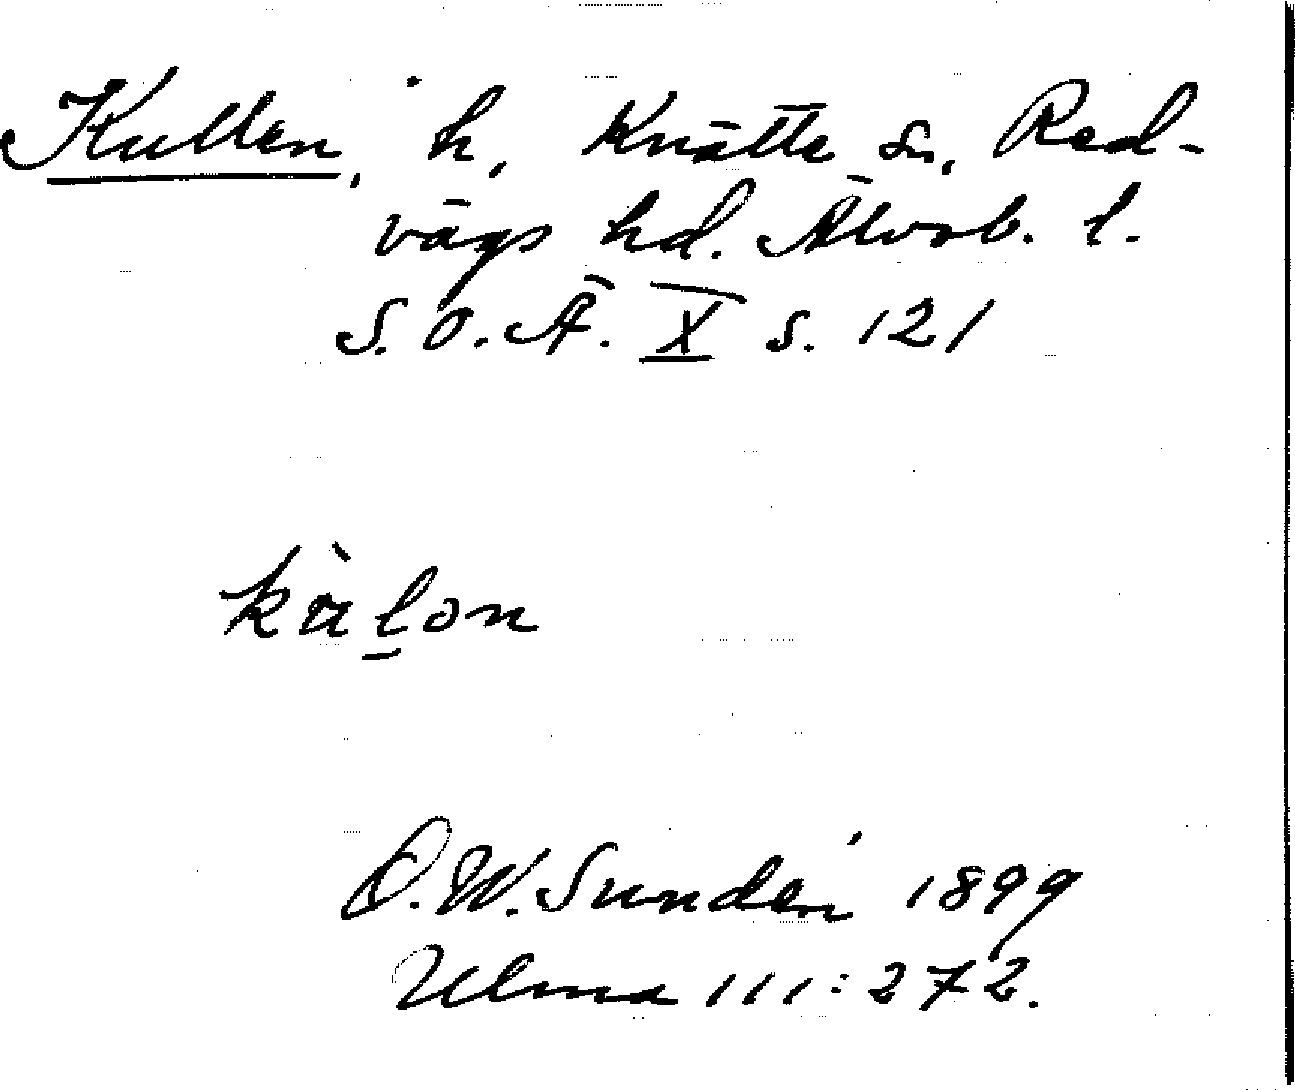 Kullen, h, Knätte sn, Red-
vägs hd. Älvsb. l.
S. O. Ä. X s. 121
kàlon
O. W. Sundén 1899
Ulma 111:272.